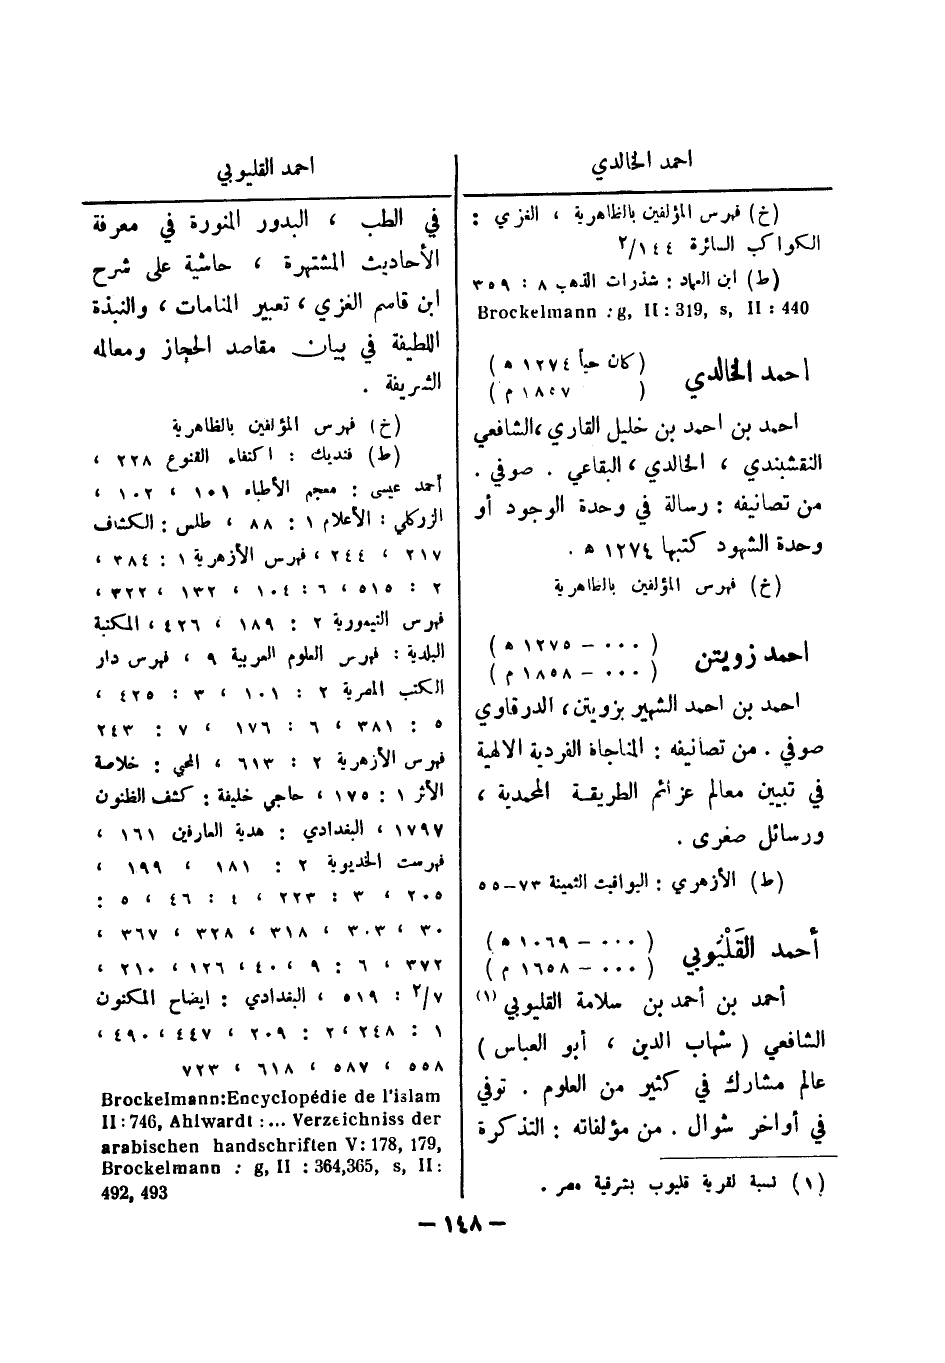 احمد الخالدي
(خ) فهرس المؤلفين بالظاهرية ، الغزي :
الكواكب السائرة ١٤٤/٢
(ط) ابن العماد : شذرات الذهب ٨ : ٣٥٩
Brockelmann : g, II : 319, s, II : 440
احمد الخالدي ( كان حياً ١٢٧٤ ه )
( ١٨٥٧ م )
احمد بن احمد بن خليل القاري ، الشافعي
النقشبندي ، الخالدي ، البقاعي . صوفي .
من تصانيفه : رسالة في وحدة الوجود أو
وحدة الشهود كتبها ١٢٧٤ ه .
(خ) فهرس المؤلفين بالظاهرية
احمد زويتن ( ٠٠٠ – ١٢٧٥ ه )
( ٠٠٠ – ١٨٥٨ م )
احمد بن احمد الشهير بزويتن ، الدرقاوي
صوفي . من تصانيفه : المناجاة الفردية الالهية
في تبيين معالم عزائم الطريقة المحمدية ،
ورسائل صغرى .
(ط) الأزهري : اليواقيت الثمينة ٧٣–٥٥
أحمد القَلْيُوبي ( ٠٠٠ – ١٠٦٩ ه )
( ٠٠٠ – ١٦٥٨ م )
أحمد بن أحمد بن سلامة القليوبي (١)
الشافعي ( شهاب الدين ، أبو العباس )
عالم مشارك في كثير من العلوم . توفي
في أواخر شوال . من مؤلفاته : التذكرة
(١) نسبة لقرية قليوب بشرقية مصر .
احمد القليوبي
في الطب ، البدور المنورة في معرفة
الأحاديث المشتهرة ، حاشية على شرح
ابن قاسم الغزي ، تعبير المنامات ، والنبذة
اللطيفة في بيان مقاصد الحجاز ومعالمه
الشريفة .
(خ) فهرس المؤلفين بالظاهرية
(ط) فنديك : اكتفاء القنوع ٢٢٨ ،
أحمد عيسى : معجم الأطباء ١٠١ ، ١٠٢ ،
الزركلي : الأعلام ١ : ٨٨ ، طلس : الكشاف
٢١٧ ، ٢٤٤ ، فهرس الأزهرية ١ : ٣٨٤ ،
٢ : ٥١٥ ، ٦ : ١٠٤ ، ١٣٢ ، ٣٢٢ ،
فهرس التيمورية ٢ : ١٨٩ ، ٤٢٦ ، المكتبة
البلدية : فهرس العلوم العربية ٩ ، فهرس دار
الكتب المصرية ٢ : ١٠١ ، ٣ : ٤٢٥ ،
٥ : ٣٨١ ، ٦ : ١٧٦ ، ٧ : ٢٤٣
فهرس الأزهرية ٢ : ٦١٣ ، المحبي : خلاصة
الأثر ١ : ١٧٥ ، حاجي خليفة : كشف الظنون
١٧٩٧ ، البغدادي : هدية العارفين ١٦١ ،
فهرست الخديوية ٢ : ١٨١ ، ١٩٩ ،
٢٠٥ ، ٣ : ٢٢٣ ، ٤ : ٤٦ ، ٥ :
٣٠ ، ٣٠٣ ، ٣١٨ ، ٣٢٨ ، ٣٦٧ ،
٣٧٢ ، ٦ : ٩ ، ٤٠ ، ١٢٦ ، ٢١٠ ،
٢/٧ : ٥١٩ ، البغدادي : ايضاح المكنون
١ : ٢٤٨ ، ٢ : ٢٠٩ ، ٤٤٧ ، ٤٩٠ ،
٥٥٨ ، ٥٨٧ ، ٦١٨ ، ٧٢٣
Brockelmann:Encyclopédie de l'islam
II : 746, Ahlwardt :... Verzeichniss der
arabischen handschriften V: 178, 179,
Brockelmann : g, II : 364,365, s, II :
492, 493
– ١٤٨ –